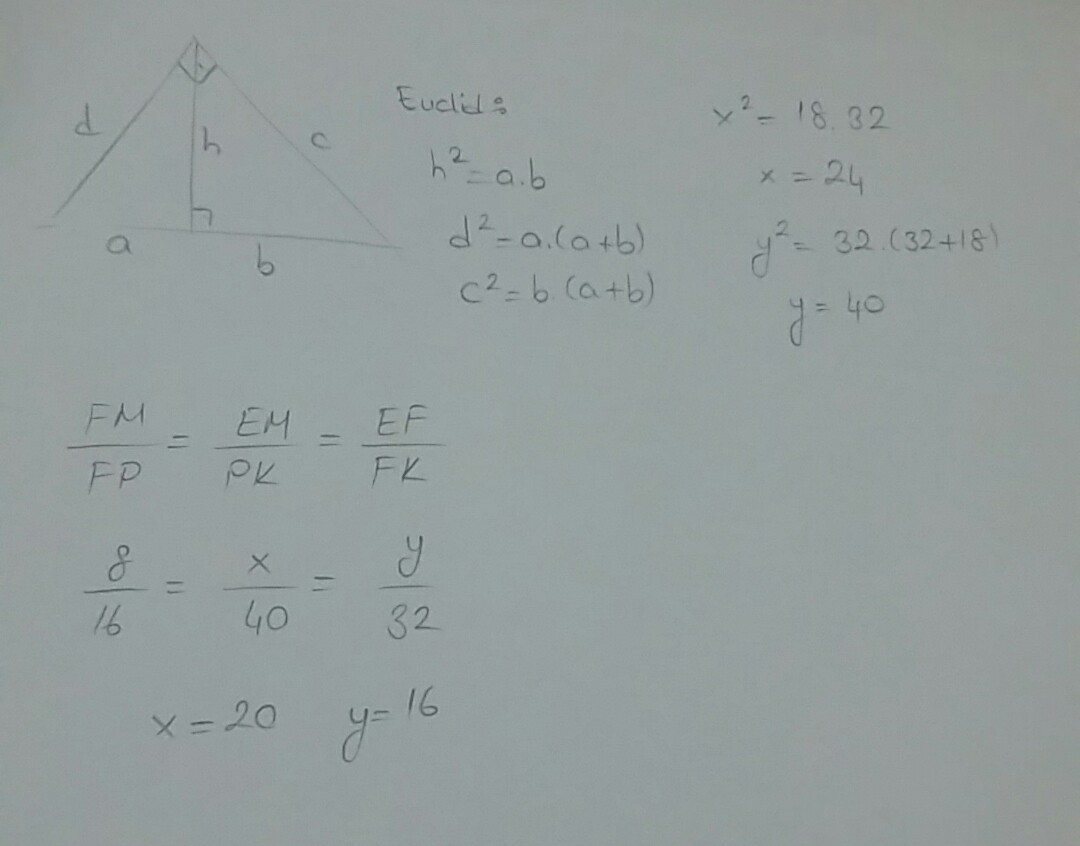 d
h
c
a
b
Euclid:
h² = a.b
d² = a.(a+b)
c² = b.(a+b)
x² = 18.32
x = 24
y² = 32.(32+18)
y = 40
FM/FP = EM/PK = EF/FK
8/16 = x/40 = y/32
x = 20 y = 16